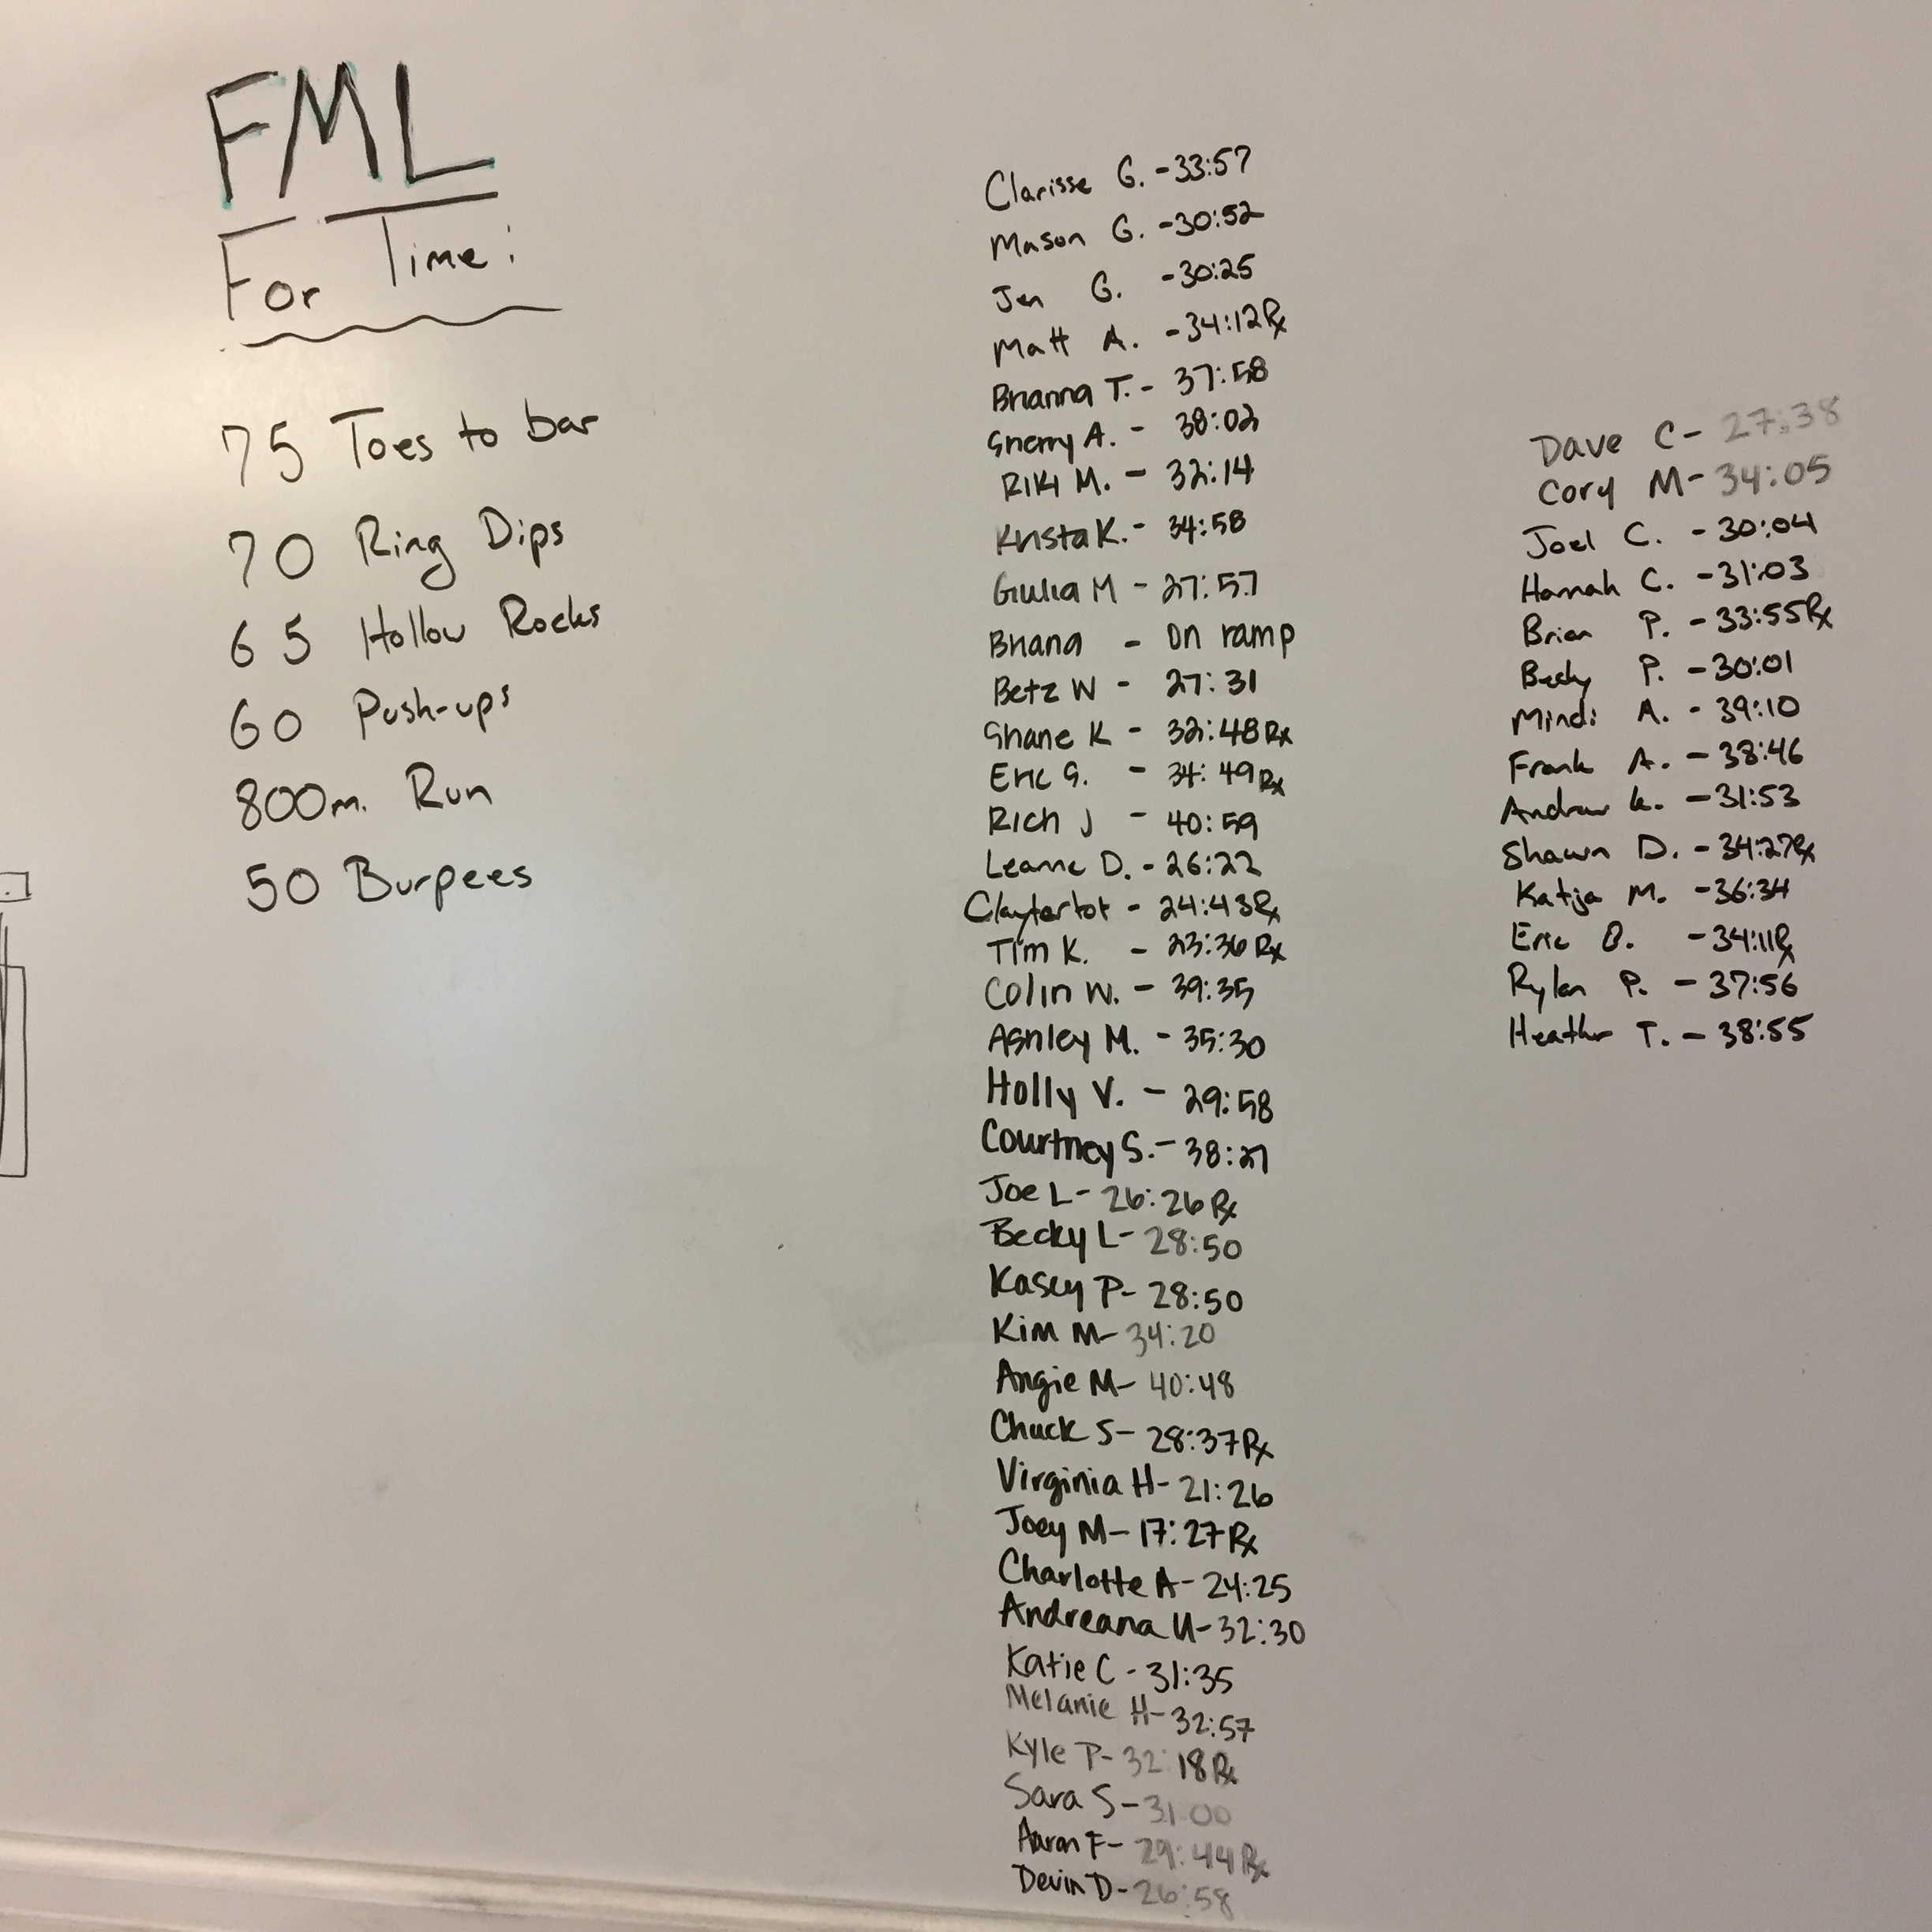 FML
For Time:
75 Toes to bar
70 Ring Dips
65 Hollow Rocks
60 Push-ups
800m. Run
50 Burpees
Clarisse G. - 33:57
Mason G. - 30:52
Jen G. - 30:25
Matt A. - 34:12 Rx
Brianna T. - 37:58
Sherry A. - 38:02
Riki M. - 32:14
Krista K. - 34:58
Giulia M - 27:57
Briana - On ramp
Betz W - 27:31
Shane K - 32:48 Rx
Eric S. - 34:49 Rx
Rich J - 40:59
Leanne D. - 26:22
Claytertot - 24:43 Rx
Tim K. - 23:36 Rx
Colin W. - 39:35
Ashley M. - 35:30
Holly V. - 29:58
Courtney S. - 38:27
Joe L - 26:26 Rx
Becky L - 28:50
Kasey P - 28:50
Kim M - 34:20
Angie M - 40:48
Chuck S - 28:37 Rx
Virginia H - 21:26
Joey M - 17:27 Rx
Charlotte A - 24:25
Andreana U - 32:30
Katie C - 31:35
Melanie H - 32:57
Kyle P - 32:18 Rx
Sara S - 31:00
Aaron F - 29:44 Rx
Devin D - 26:58
Dave C - 27:38
Cory M - 34:05
Joel C. - 30:04
Hannah C. - 31:03
Brian P. - 33:55 Rx
Becky P. - 30:01
Mindi A. - 39:10
Frank A. - 38:46
Andrew K. - 31:53
Shawn D. - 34:27 Rx
Katja M. - 36:34
Eric B. - 34:11 Rx
Rylan P. - 37:56
Heather T. - 38:55